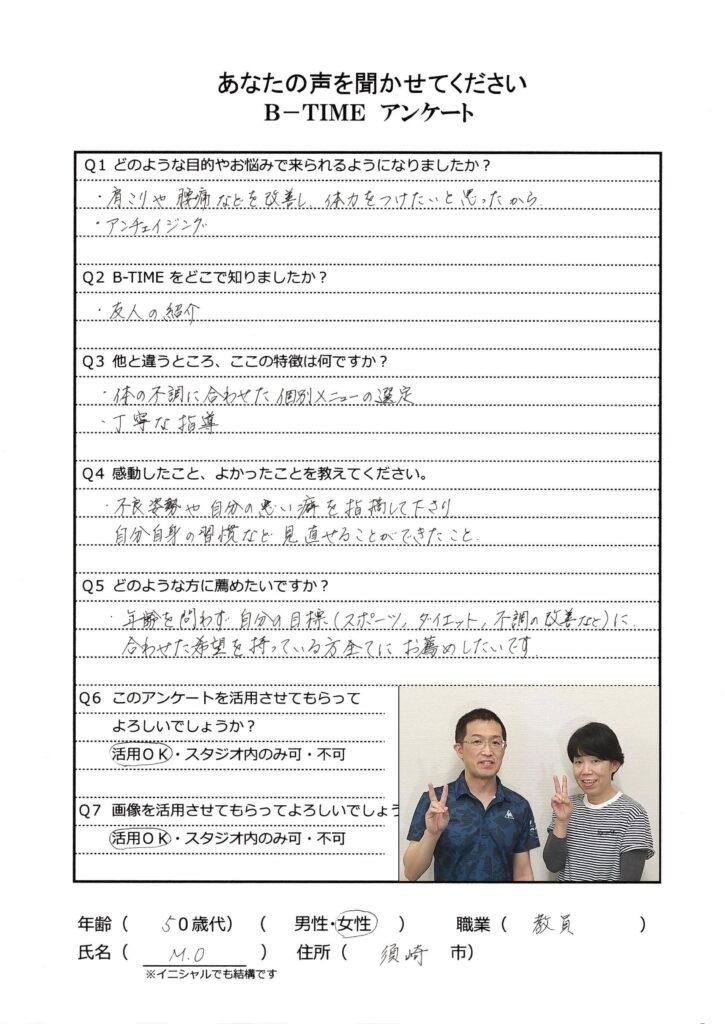 あなたの声を聞かせてください
B－TIME アンケート
Q1 どのような目的やお悩みで来られるようになりましたか？
・肩こりや腰痛などを改善し、体力をつけたいと思ったから
・アンチェイジング
Q2 B-TIME をどこで知りましたか？
・友人の紹介
Q3 他と違うところ、ここの特徴は何ですか？
・体の不調に合わせた個別メニューの選定
・丁寧な指導
Q4 感動したこと、よかったことを教えてください。
・不良姿勢や自分の悪い癖を指摘して下さり
自分自身の習慣など見直せることができたこと
Q5 どのような方に薦めたいですか？
・年齢を問わず自分の目標(スポーツ, ダイエット, 不調の改善など)に
合わせた希望を持っている方全てにお薦めしたいです
Q6 このアンケートを活用させてもらって
よろしいでしょうか？
活用OK・スタジオ内のみ可・不可
Q7 画像を活用させてもらってよろしいでしょう
活用OK・スタジオ内のみ可・不可
年齢（ 50歳代）（ 男性・女性 ） 職業（ 教員 ）
氏名（ M.O ） 住所（ 須崎 市）
※イニシャルでも結構です